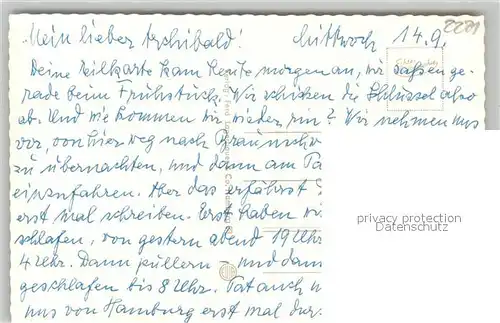 Mein lieber Archibald! Mittwoch 14.9.
2221
Deine Eilkarte kam heute morgen an, wir saßen ge-
rade beim Frühstück. Wir schicken die Schlüssel also
ab. Und wie kommen wir wieder rin? Wir nehmen uns
vor, von hier weg nach Braunschw
zu übernachten, und dann am Ta
einzufahren. Aber das erfährst
erst mal schreiben. Erst haben wi
schlafen, von gestern abend 19 Uhr
4 Uhr. Dann püllern und dann
geschlafen bis 8 Uhr. Tat auch
uns von Hamburg erst mal dur-
privacy protection
Datenschutz